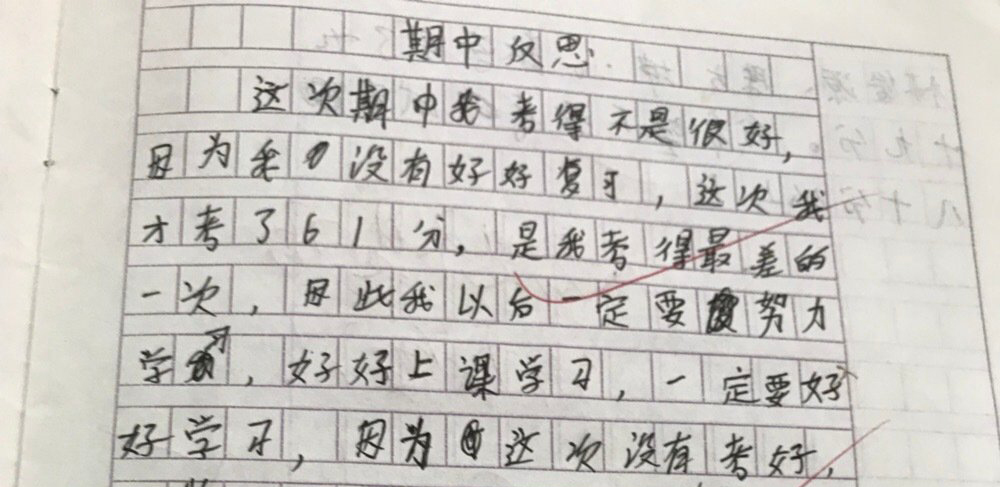 期中反思
这次期中我考得不是很好,
因为我没有好好复习,这次我
才考了61分,是我考得最差的
一次,因此我以后一定要努力
学习,好好上课学习,一定要好
好学习,因为这次没有考好,